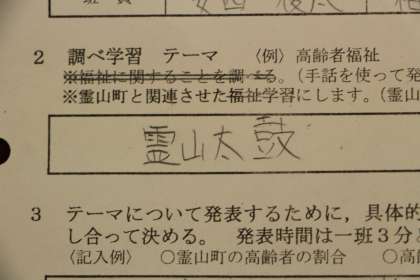 2 調べ学習 テーマ 〈例〉高齢者福祉
※福祉に関することを調べる。(手話を使って発
※霊山町と関連させた福祉学習にします。(霊山
霊山太鼓
3 テーマについて発表するために，具体的
し合って決める。 発表時間は一班3分と
〈記入例〉 ○霊山町の高齢者の割合 ○高